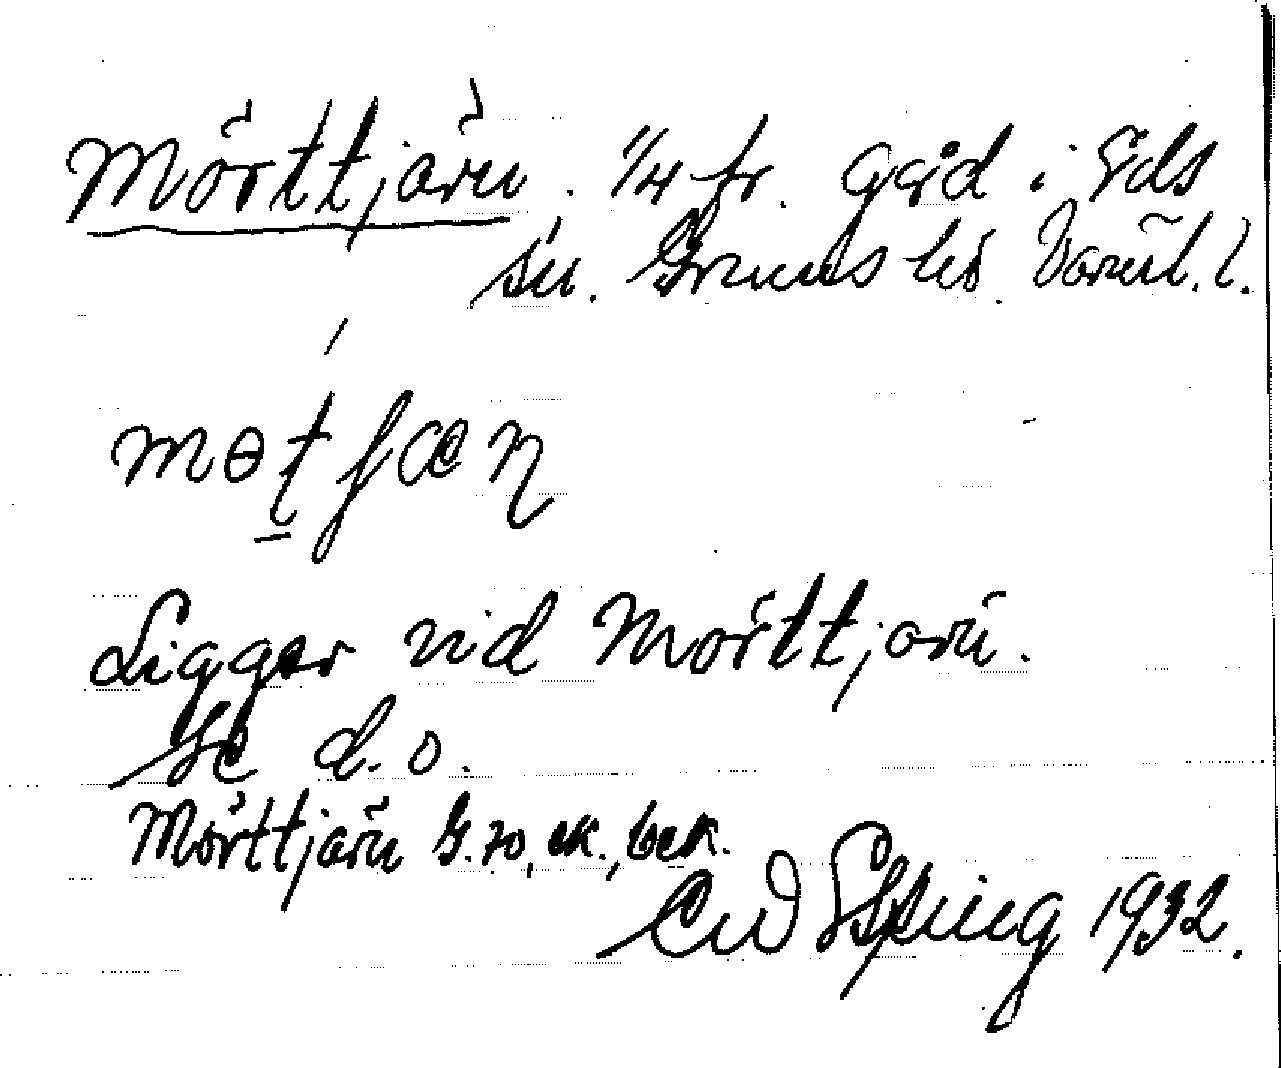 Mörttjärn. 1/4 fr. gård i Eds
sn. Grums hd. Värml. l.
møtʃæɳ
Ligger vid Mörttjärn.
Se d. o.
Mörttjärn G. 70, ek., bek.
CW Esping 1932.